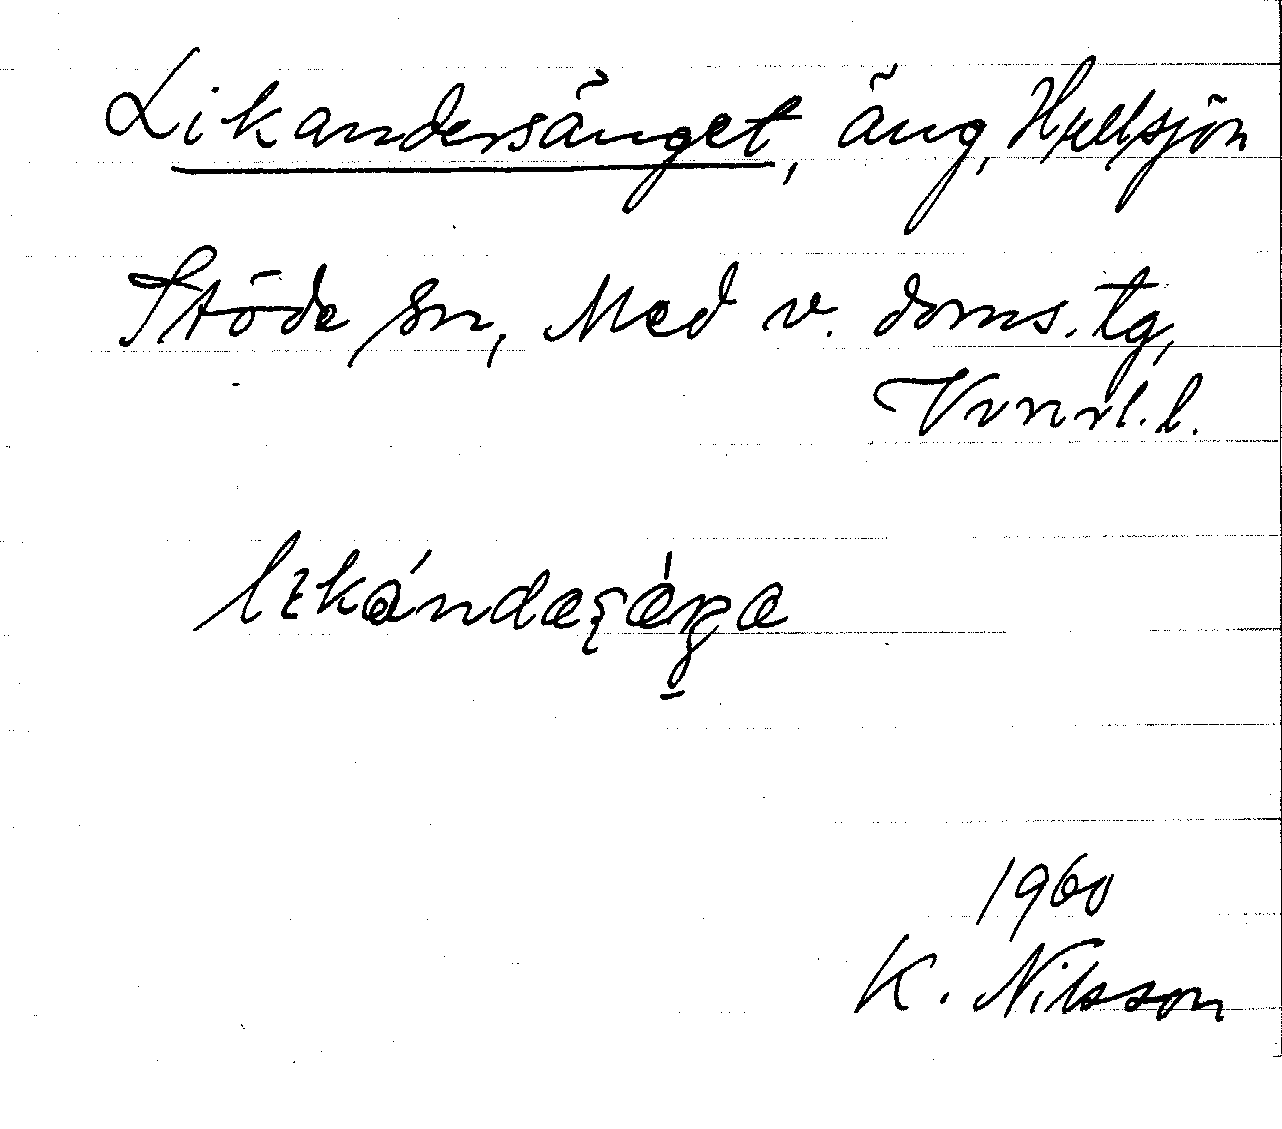 Likandersänget, äng, Hullsjön
Stöde sn, Med v. doms. tg,
Vrnrl. l.
1960
K. Nilsson